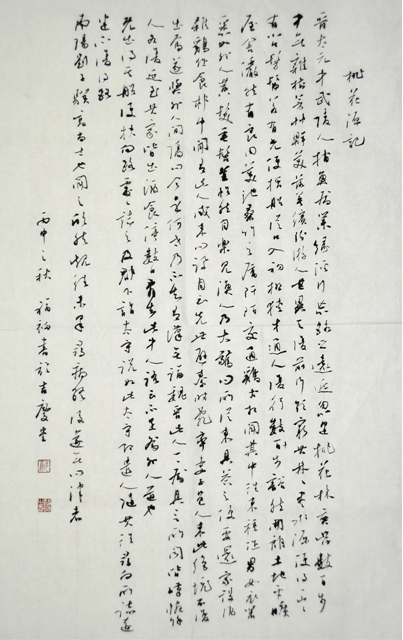 桃花源記
晉太元中武陵人捕魚為業緣溪行忘路之遠近忽逢桃花林夾岸數百步
中無雜樹芳草鮮美落英繽紛漁人甚異之復前行欲窮其林林盡水源便得一山
山有小口髣髴若有光便捨船從口入初極狹才通人復行數十步豁然開朗土地平曠
屋舍儼然有良田美池桑竹之屬阡陌交通雞犬相聞其中往來種作男女衣著
悉如外人黃髮垂髫並怡然自樂見漁人乃大驚問所從來具答之便要還家設酒
殺雞作食村中聞有此人咸來問訊自云先世避秦時亂率妻子邑人來此絕境不復
出焉遂與外人間隔問今是何世乃不知有漢無論魏晉此人一一為具言所聞皆歎惋餘
人各復延至其家皆出酒食停數日辭去此中人語云不足為外人道也
既出得其船便扶向路處處誌之及郡下詣太守說如此太守即遣人隨其往尋向所誌遂
迷不復得路
南陽劉子驥高尚士也聞之欣然規往未果尋病終後遂無問津者
丙申之秋 書於吉慶堂